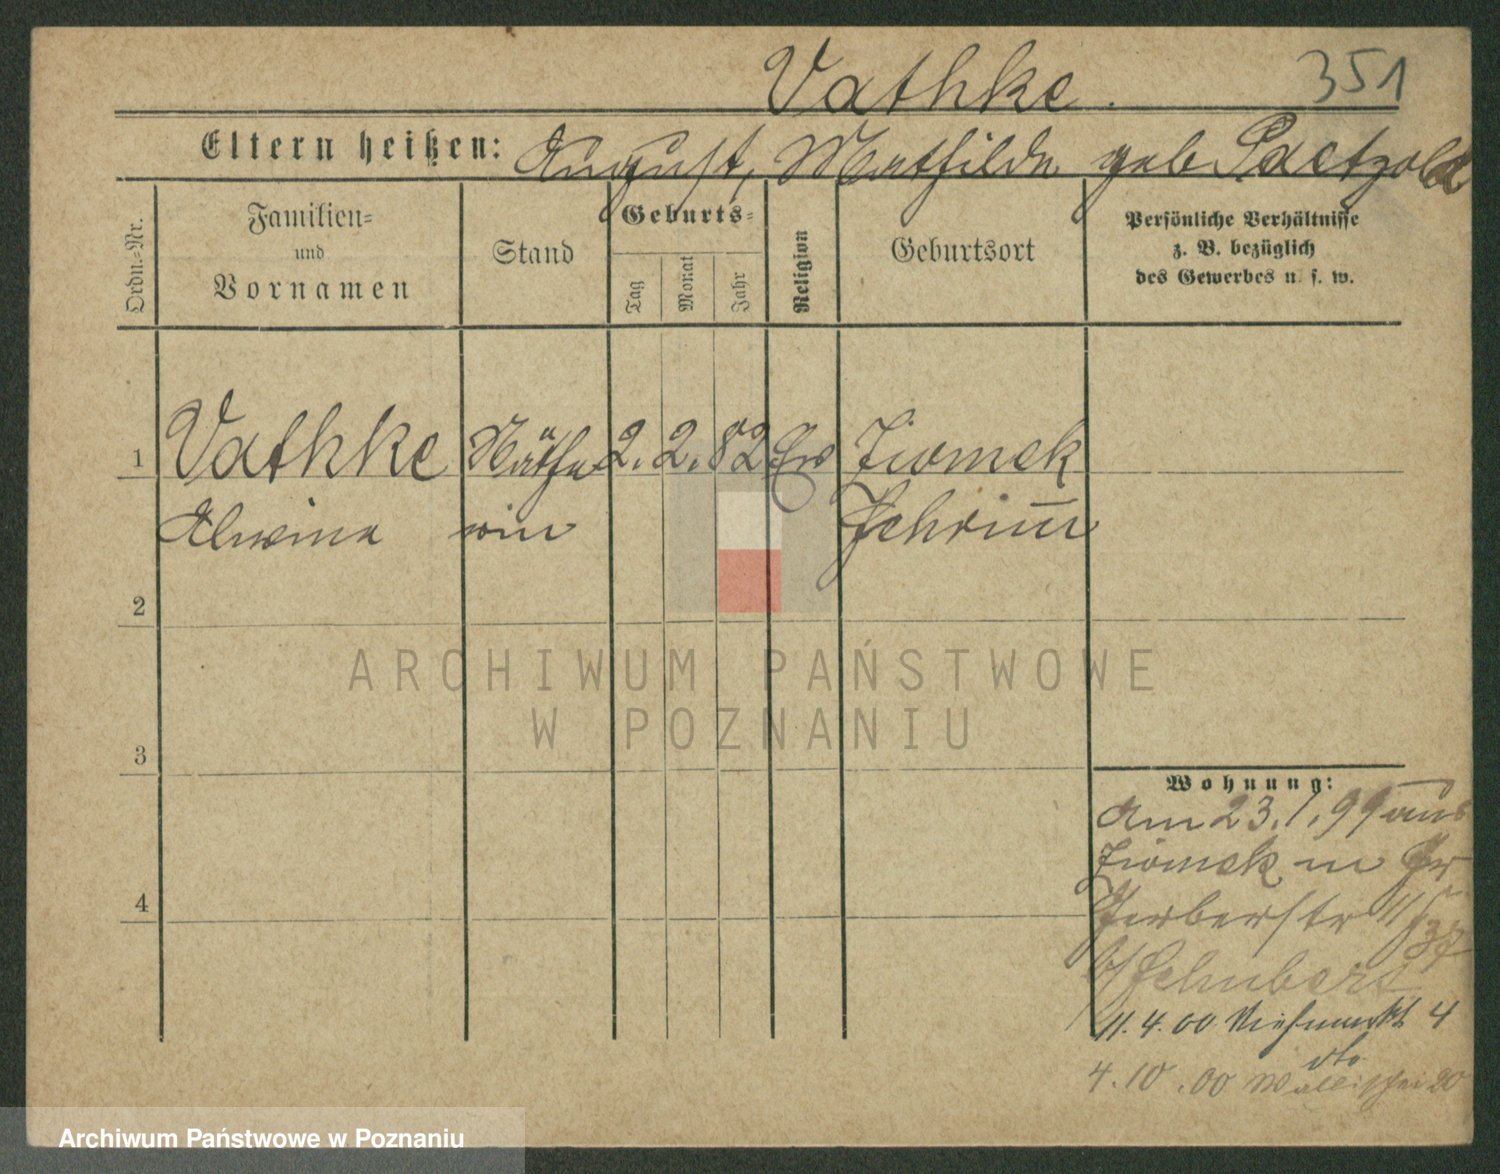 Vathke. 351
Eltern heißen: August, Mathilde geb Paetzold
Ordn.-Nr.
Familien-
und
Vornamen
Stand
Geburts-
Tag
Monat
Jahr
Religion
Geburtsort
Persönliche Verhältnisse
z. B. bezüglich
des Gewerbes u. s. w.
1 Vathke Näthe 2. 2. 82 Ev Ziomek
Alwina rin Schrimm
2
3
4
Wohnung:
Am 23.1.99 aus
Ziomek in Gr
Gerberstr
b/ Schubert
11.4.00 Viehmarkt 4
dto
4.10.00 Wallischei 20
ARCHIWUM PAŃSTWOWE
W POZNANIU
Archiwum Państwowe w Poznaniu